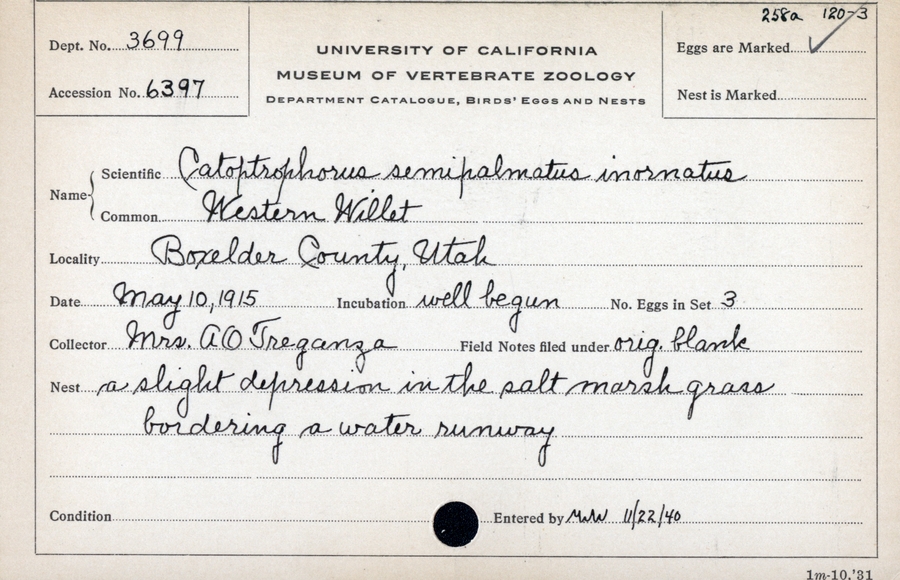 258a 120-3
Dept. No. 3699
UNIVERSITY OF CALIFORNIA
MUSEUM OF VERTEBRATE ZOOLOGY
DEPARTMENT CATALOGUE, BIRDS' EGGS AND NESTS
Eggs are Marked ✓
Accession No. 6397
Nest is Marked
Name
Scientific Catoptrophorus semipalmatus inornatus
Common Western Willet
Locality Boxelder County, Utah
Date May 10, 1915 Incubation well begun No. Eggs in Set 3
Collector Mrs. AO Treganza Field Notes filed under orig. blank
Nest a slight depression in the salt marsh grass
bordering a water runway
Condition Entered by 11/22/40
1m-10,'31